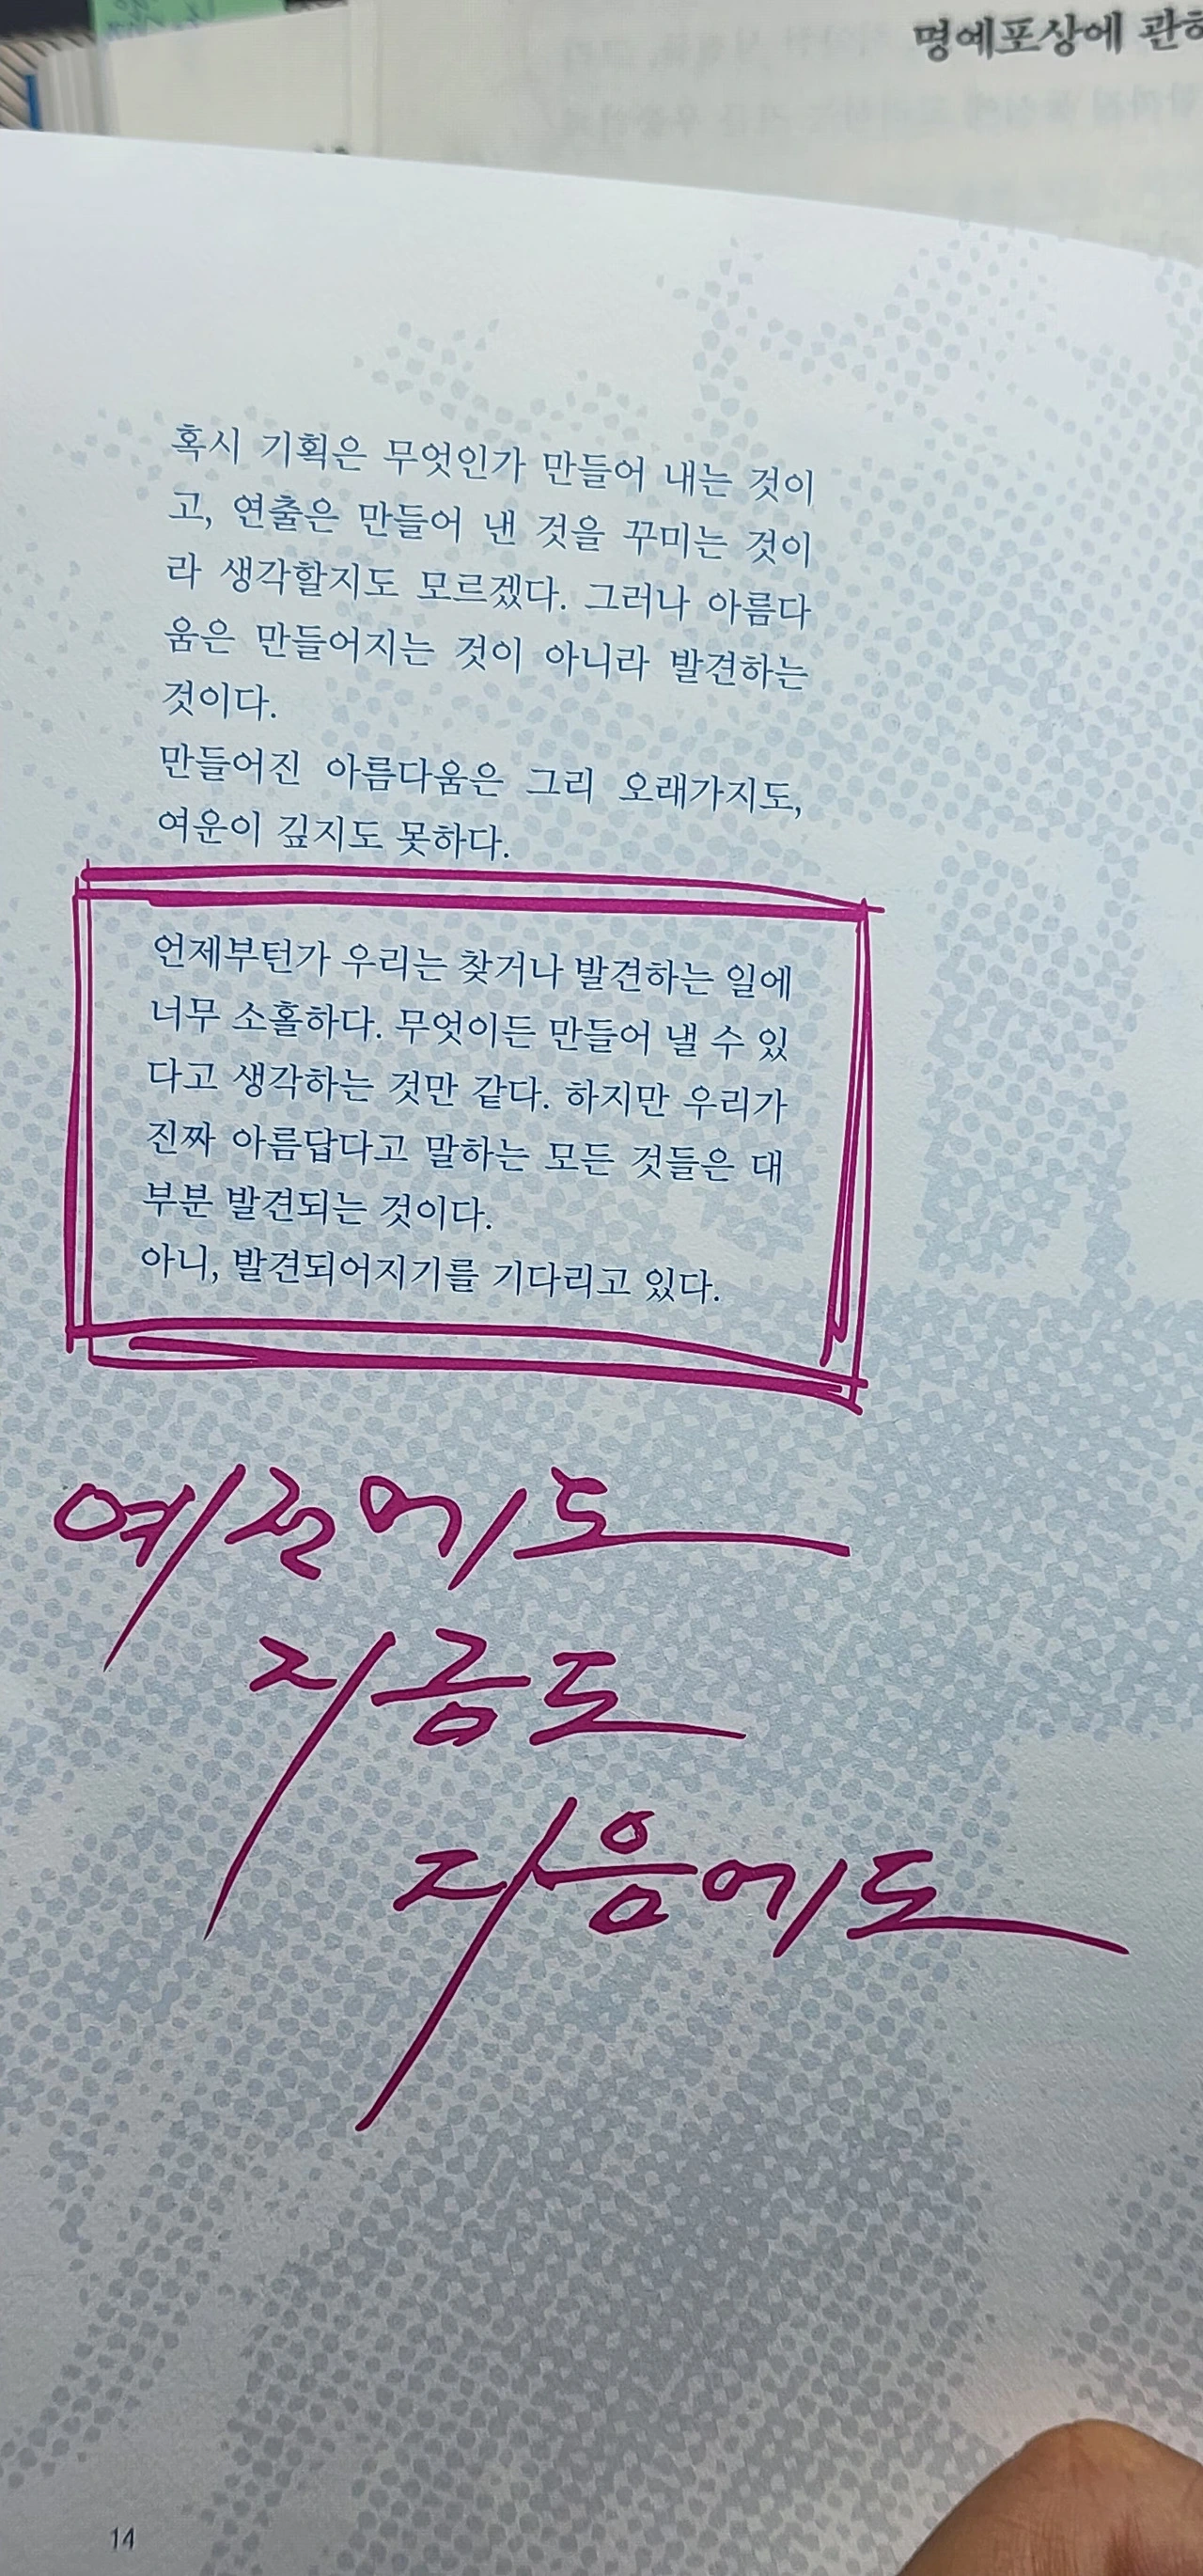 명예포상에 관하
혹시 기획은 무엇인가 만들어 내는 것이
고, 연출은 만들어 낸 것을 꾸미는 것이
라 생각할지도 모르겠다. 그러나 아름다
움은 만들어지는 것이 아니라 발견하는
것이다.
만들어진 아름다움은 그리 오래가지도,
여운이 깊지도 못하다.
언제부턴가 우리는 찾거나 발견하는 일에
너무 소홀하다. 무엇이든 만들어 낼 수 있
다고 생각하는 것만 같다. 하지만 우리가
진짜 아름답다고 말하는 모든 것들은 대
부분 발견되는 것이다.
아니, 발견되어지기를 기다리고 있다.
예전에도
지금도
다음에도
14